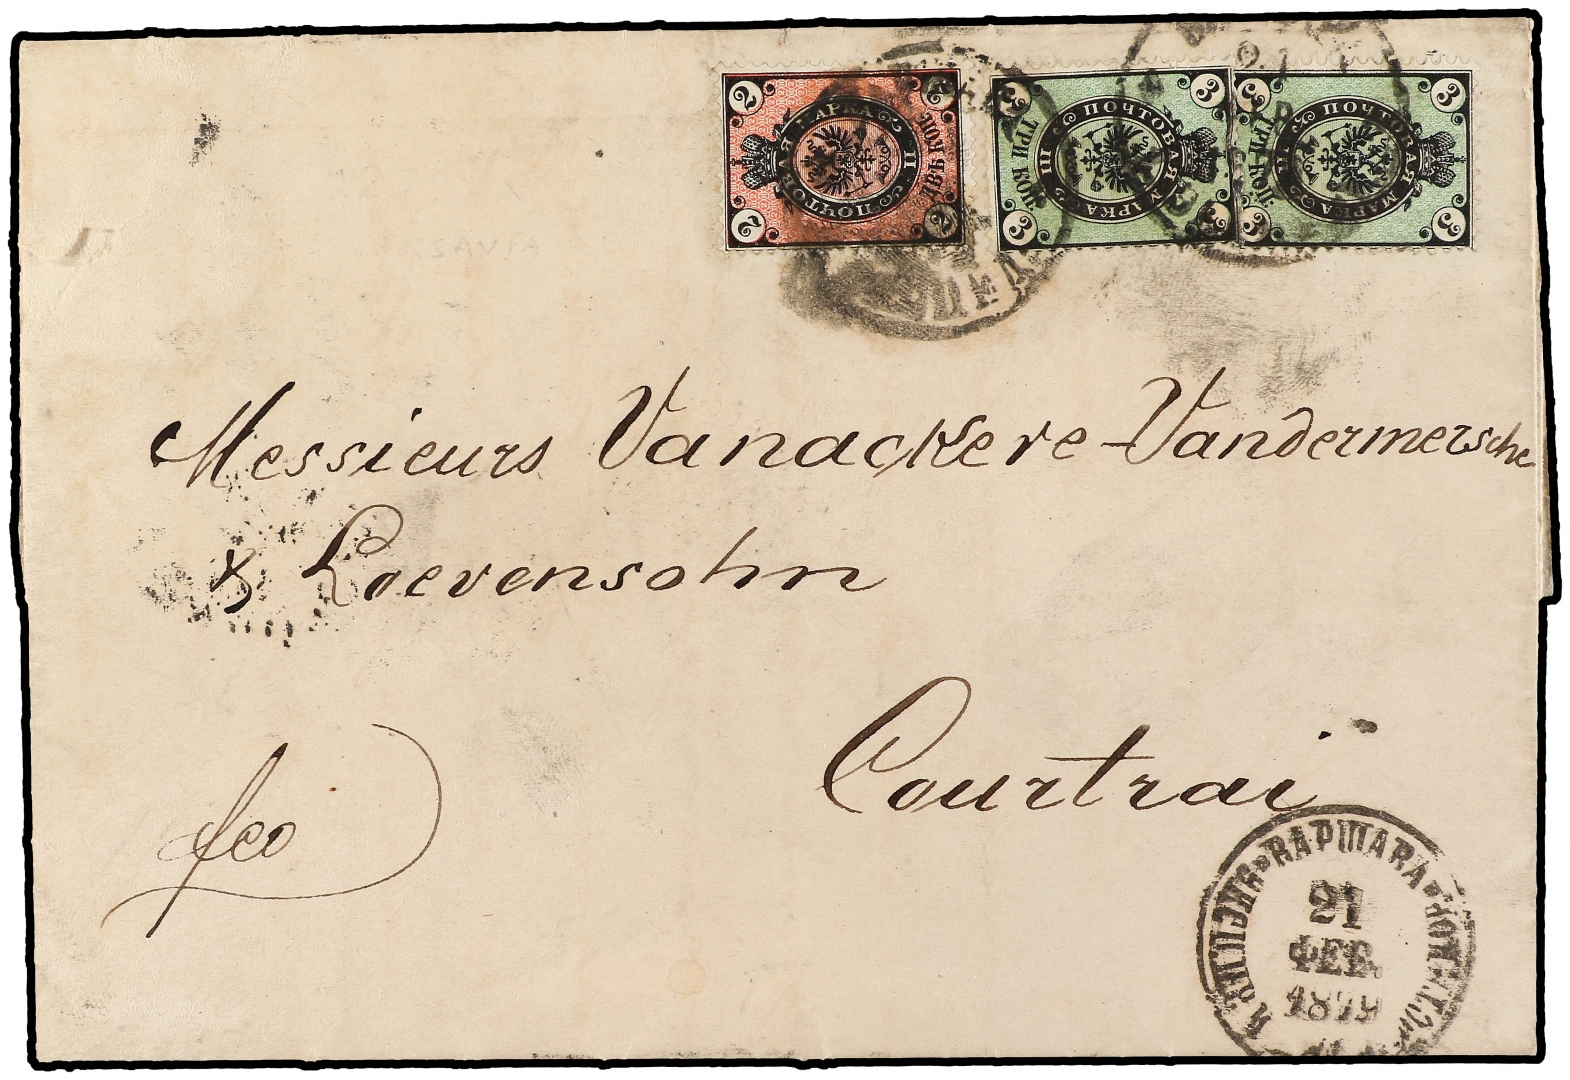 2 2 2 2
ПОЧТОВАЯ МАРКА
ДВѢ КОП.
3 3 3 3
ПОЧТОВАЯ МАРКА
ТРИ КОП.
3 3 3 3
ПОЧТОВАЯ МАРКА
ТРИ КОП.
Messieurs Vanackere-Vandermersche
& Loevensohn
Courtrai
fco
ВАРШАВА
21
ФЕВ.
1879